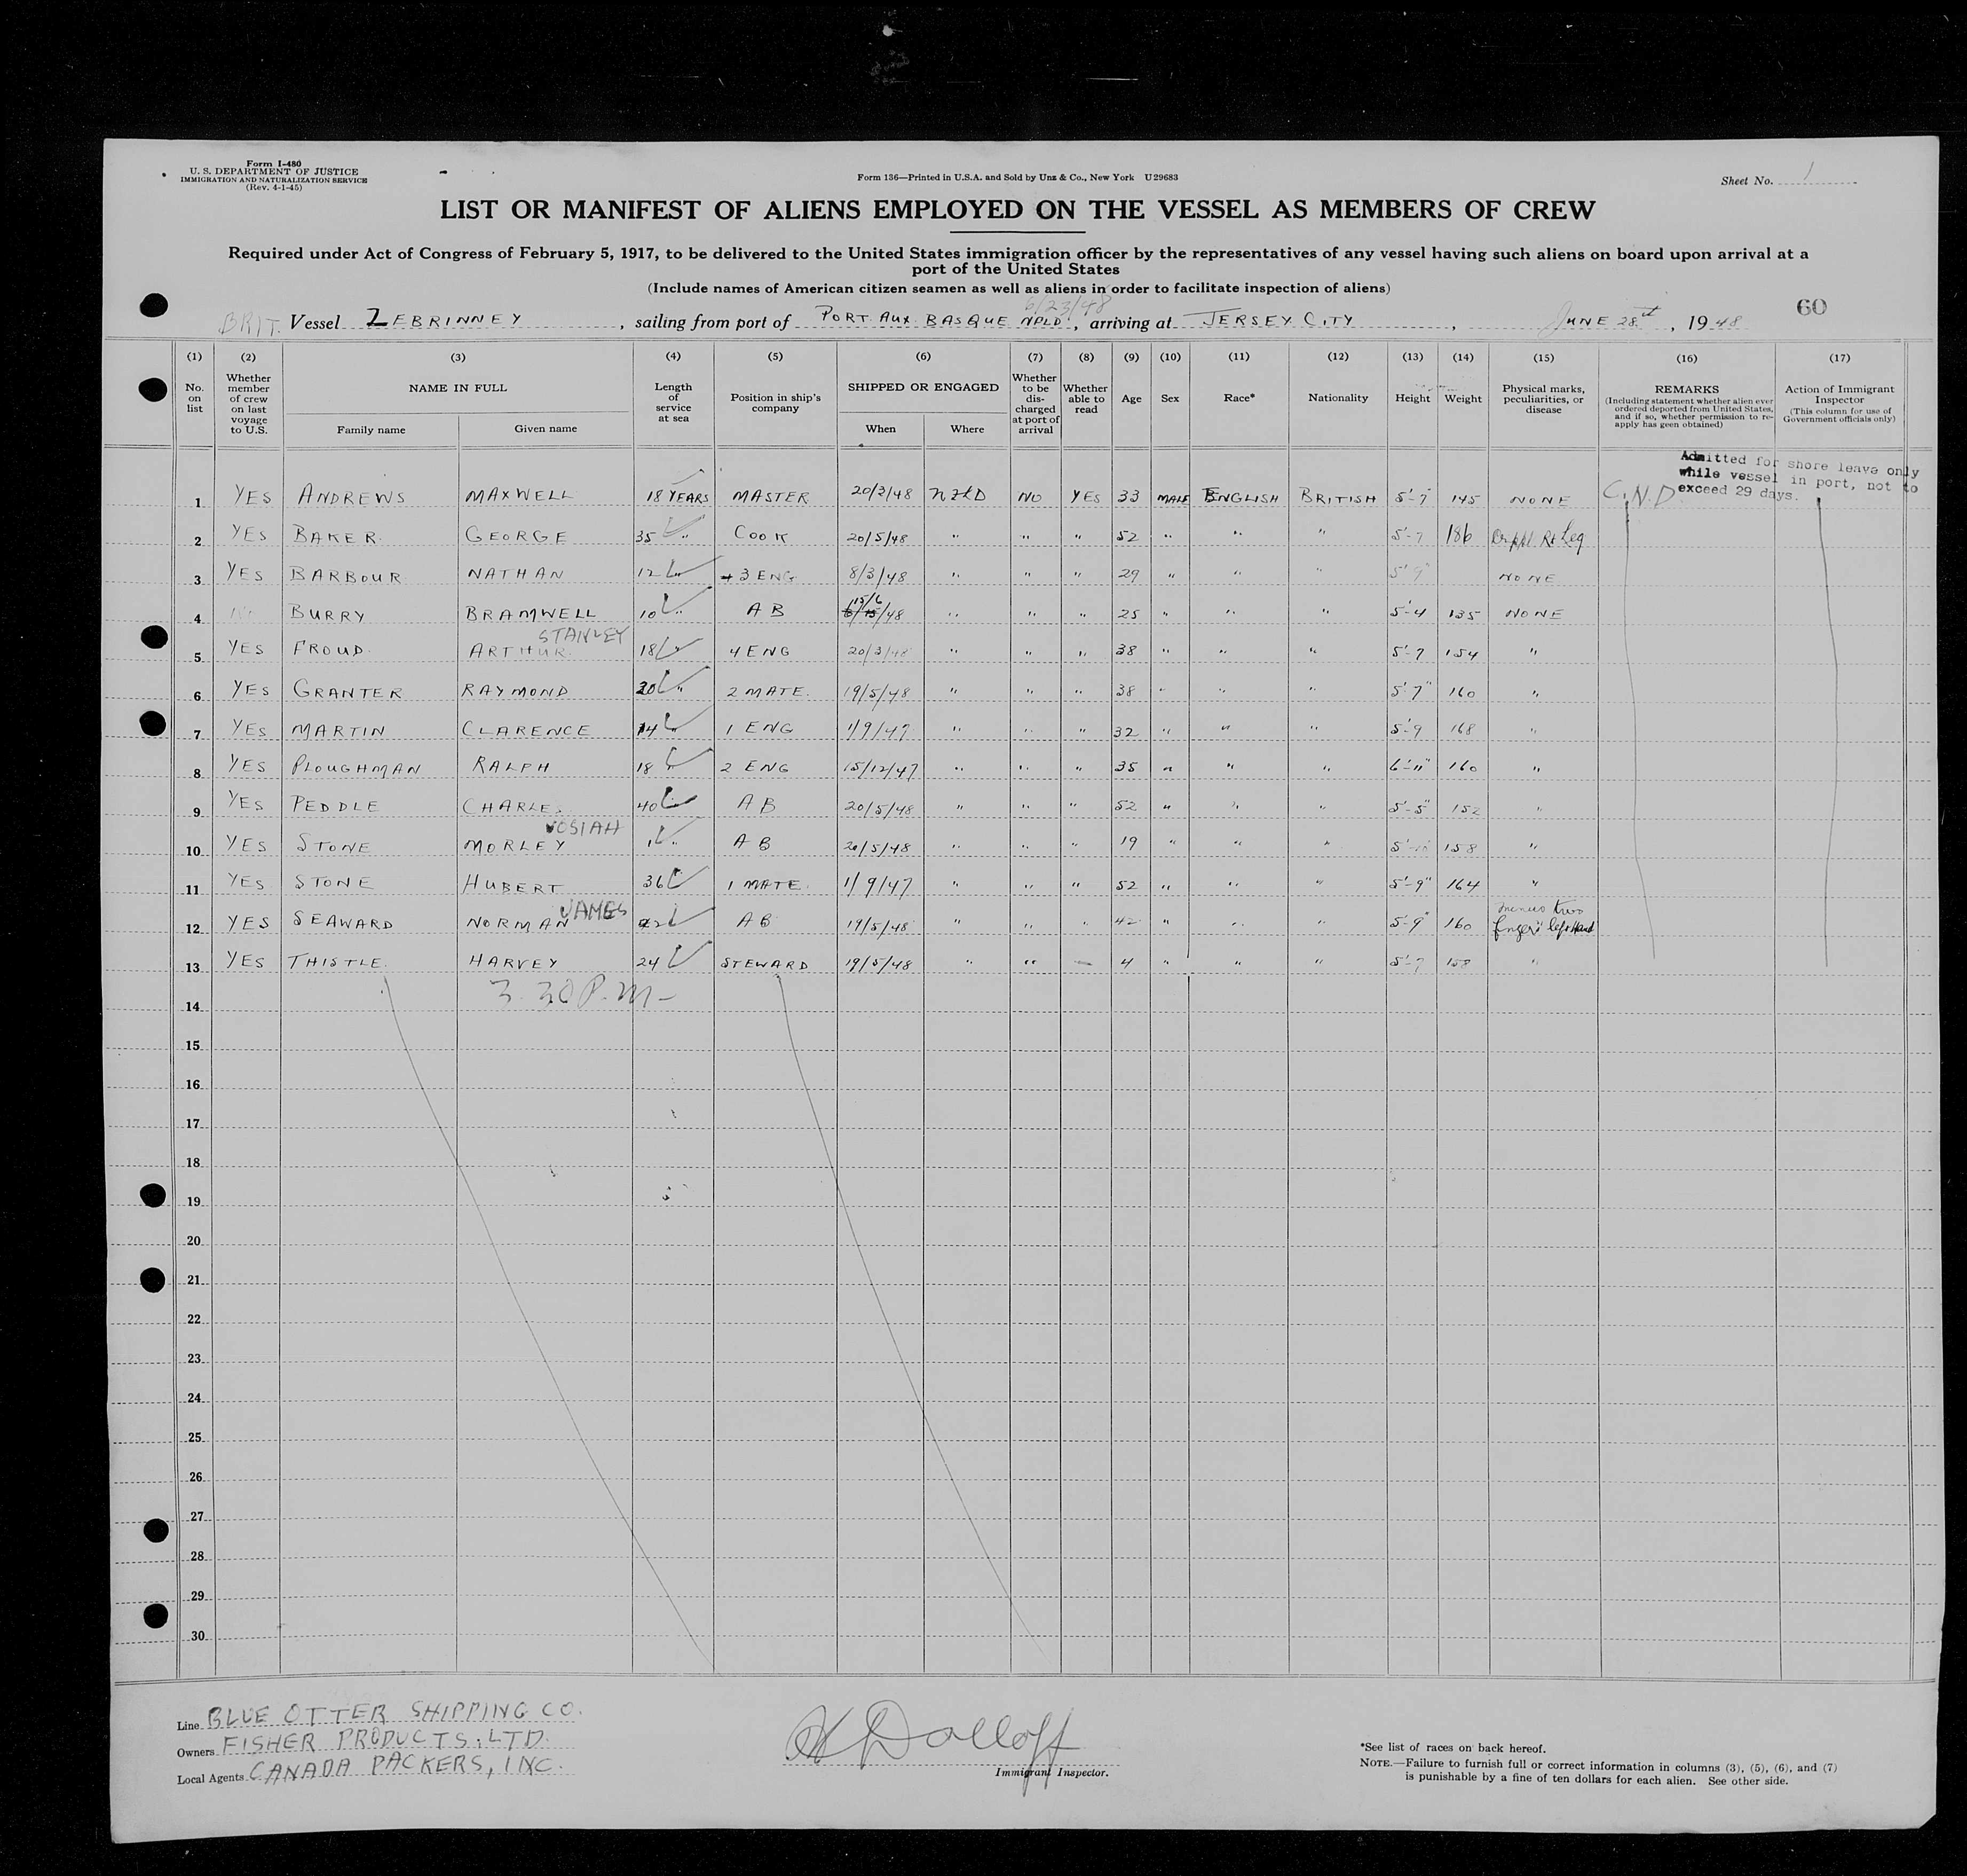 Form I-480
U. S. DEPARTMENT OF JUSTICE
IMMIGRATION AND NATURALIZATION SERVICE
(Rev. 4-1-45)
Form 136—Printed in U.S.A. and Sold by Unz & Co., New York U29683
Sheet No. 1
LIST OR MANIFEST OF ALIENS EMPLOYED ON THE VESSEL AS MEMBERS OF CREW
Required under Act of Congress of February 5, 1917, to be delivered to the United States immigration officer by the representatives of any vessel having such aliens on board upon arrival at a
port of the United States
(Include names of American citizen seamen as well as aliens in order to facilitate inspection of aliens)
6/23/48
BRIT. Vessel ZEBRINNEY, sailing from port of PORT AUX BASQUE NFLD, arriving at JERSEY CITY, JUNE 28th, 1948 60
(1) (2) (3) (4) (5) (6) (7) (8) (9) (10) (11) (12) (13) (14) (15) (16) (17)
No. on list
Whether member of crew on last voyage to U.S.
NAME IN FULL
Family name Given name
Length of service at sea
Position in ship's company
SHIPPED OR ENGAGED
When Where
Whether to be discharged at port of arrival
Whether able to read
Age Sex Race* Nationality Height Weight
Physical marks, peculiarities, or disease
REMARKS
(Including statement whether alien ever ordered deported from United States, and if so, whether permission to re-apply has geen obtained)
Action of Immigrant Inspector
(This column for use of Government officials only)
Admitted for shore leave only
while vessel in port, not to
exceed 29 days.
1 YES ANDREWS MAXWELL 18 YEARS MASTER 20/3/48 NFLD NO YES 33 MALE ENGLISH BRITISH 5'-7" 145 NONE
2 YES BAKER GEORGE 35 " COOK 20/5/48 " " " 52 " " " 5'-7 186 Rt Leg
3 YES BARBOUR NATHAN 12 " 3 ENG 8/3/48 " " " 29 " " " 5'9" NONE
15/6
4 BURRY BRAMWELL 10 " AB /48 " " " 25 " " " 5'-4 135 NONE
STANLEY
5 YES FROUD ARTHUR 18 " 4 ENG 20/3/48 " " " 38 " " " 5'-7 154 "
6 YES GRANTER RAYMOND 20 " 2 MATE 19/5/48 " " " 38 " " " 5'-7" 160 "
7 YES MARTIN CLARENCE 14 " 1 ENG 1/9/47 " " " 32 " " " 5'-9 168 "
8 YES PLOUGHMAN RALPH 18 " 2 ENG 15/12/47 " " " 35 " " " 160 "
9 YES PEDDLE CHARLES 40 " AB 20/5/48 " " " 52 " " " 5'-5" 152 "
JOSIAH
10 YES STONE MORLEY 1 " AB 20/5/48 " " " 19 " " " 158 "
11 YES STONE HUBERT 36 " 1 MATE 1/9/47 " " " 52 " " " 5'-9" 164 "
JAMES minus two
12 YES SEAWARD NORMAN 22 AB 19/5/48 " " " 42 " " " 5'-9" 160 fingers left Hand
13 YES THISTLE HARVEY 24 STEWARD 19/5/48 " " 4 " " " 5'-7 158 "
3.30 P.M-
14
15
16
17
18
19
20
21
22
23
24
25
26
27
28
29
30
Line BLUE OTTER SHIPPING CO.
Owners FISHER PRODUCTS, LTD.
Local Agents CANADA PACKERS, INC.
Immigrant Inspector.
*See list of races on back hereof.
NOTE.—Failure to furnish full or correct information in columns (3), (5), (6), and (7)
is punishable by a fine of ten dollars for each alien. See other side.